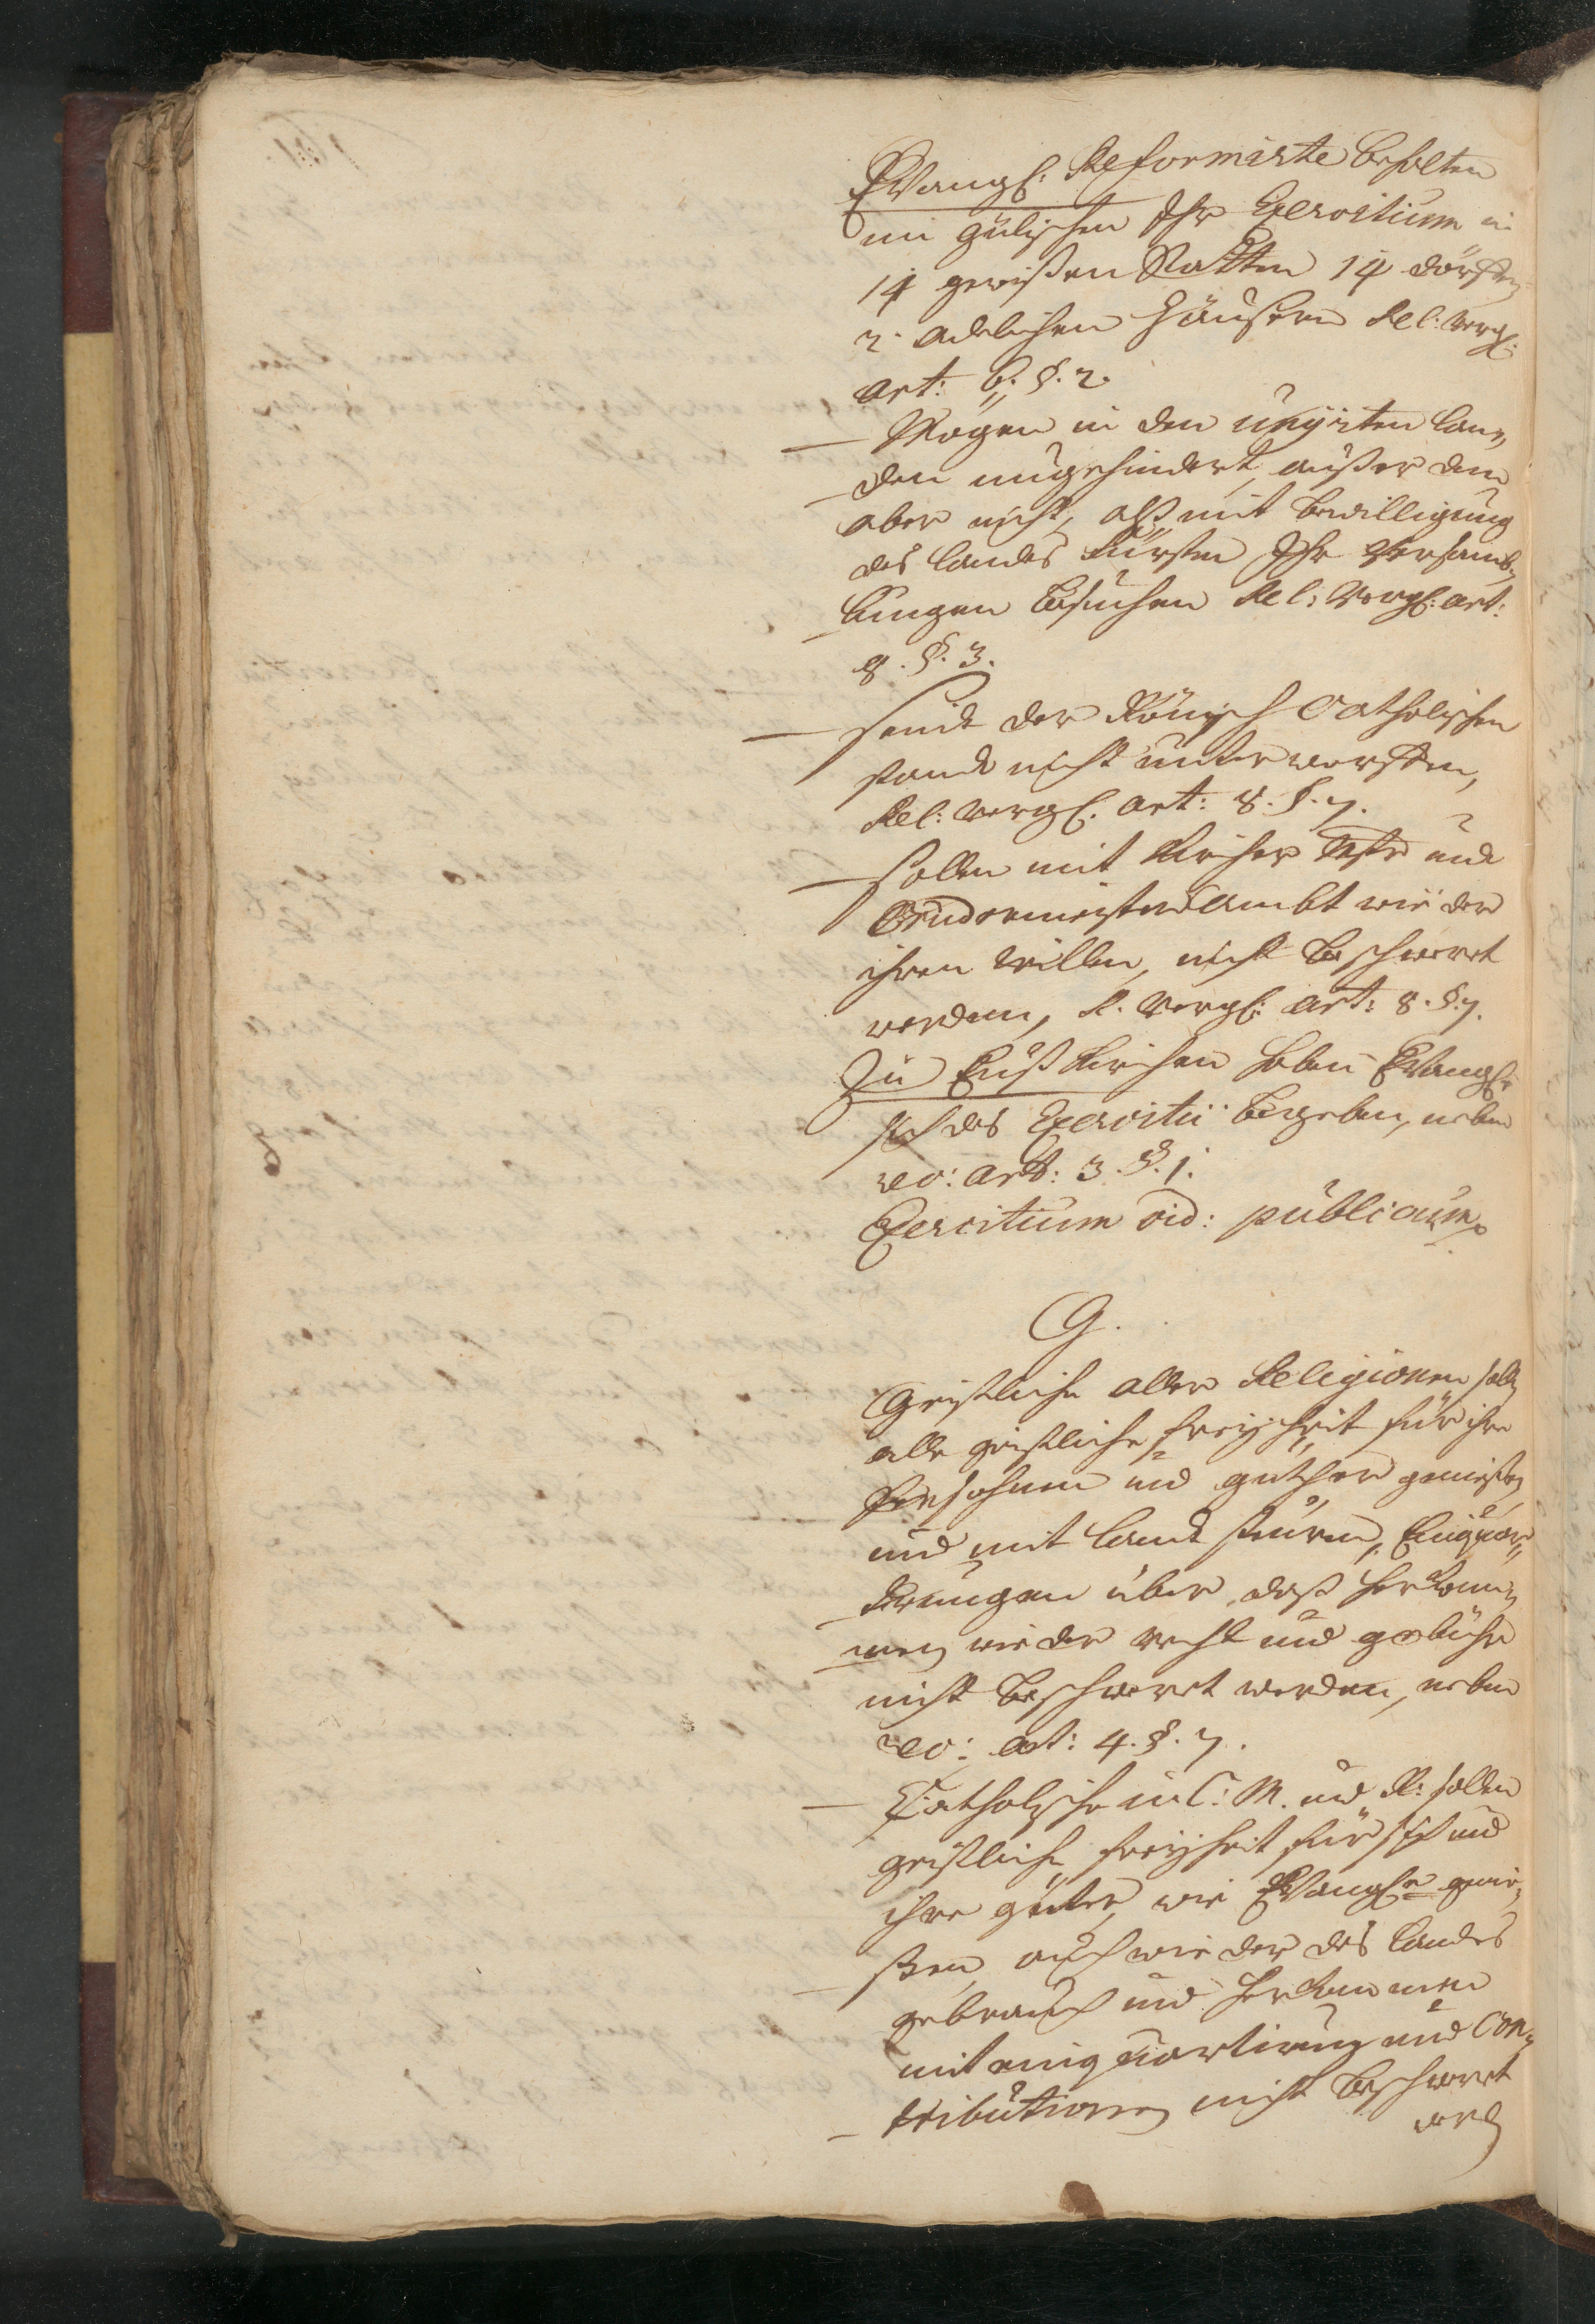 Evangl: Reformirte behalten
im gülischen Ihr Exercitium in
14 gewißen Statten 14 dörffern
2. adelichen Häüseren Rel: vergl:
art: 6. §. 2.
— Mögen in den unyrten lan„
den ungehindert, außer dem
aber nicht, alß mit bewilligung
des landes Fürsten Ihr Versamb„
lungen besuchen Rel: Vergl: art:
8. §. 3.
— seind der Römisch Catholischen
nicht unterworffen,
Rel: Vergl. art: 8. §. 7.
— sollen mit Kirchen und
Brudermeister ambt wieder
ihren willen, nicht beschwert
werden, R. Vergl: art: 8. §. 7.
Zu Eußkirchen haben Evangle
sich des Exercitii begeben, neben
rec: art: 3. §. 1.
Exercitium vid: publicum.
G.
Geistliche aller Religionen sollen
alle geistliche freyheit für ihre
Persohnen und güther genießen
und mit land steuren, Einquar„
tirungen über daß herkom„
men wieder recht und gebühr
nicht beschweret werden, neben
rec: art: 4. §. 7.
— Catholische in C: M. und R: sollen
geistliche freyheit für sich und
ihre güter, wie Evangle genie„
ßen, auch wieder des landes
gebrauch und herkommen
mit einquartirung und Con„
tributionen nicht beschweret
werden